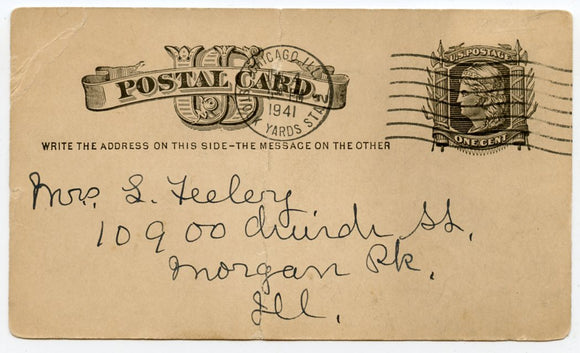 U.S. POSTAGE
POSTAL CARD.
US
CHICAGO, ILL.
1941
YARDS STA.
ONE CENT
WRITE THE ADDRESS ON THIS SIDE–THE MESSAGE ON THE OTHER
Mrs. L. Feeley
10900 Church St.
Morgan Pk.
Ill.